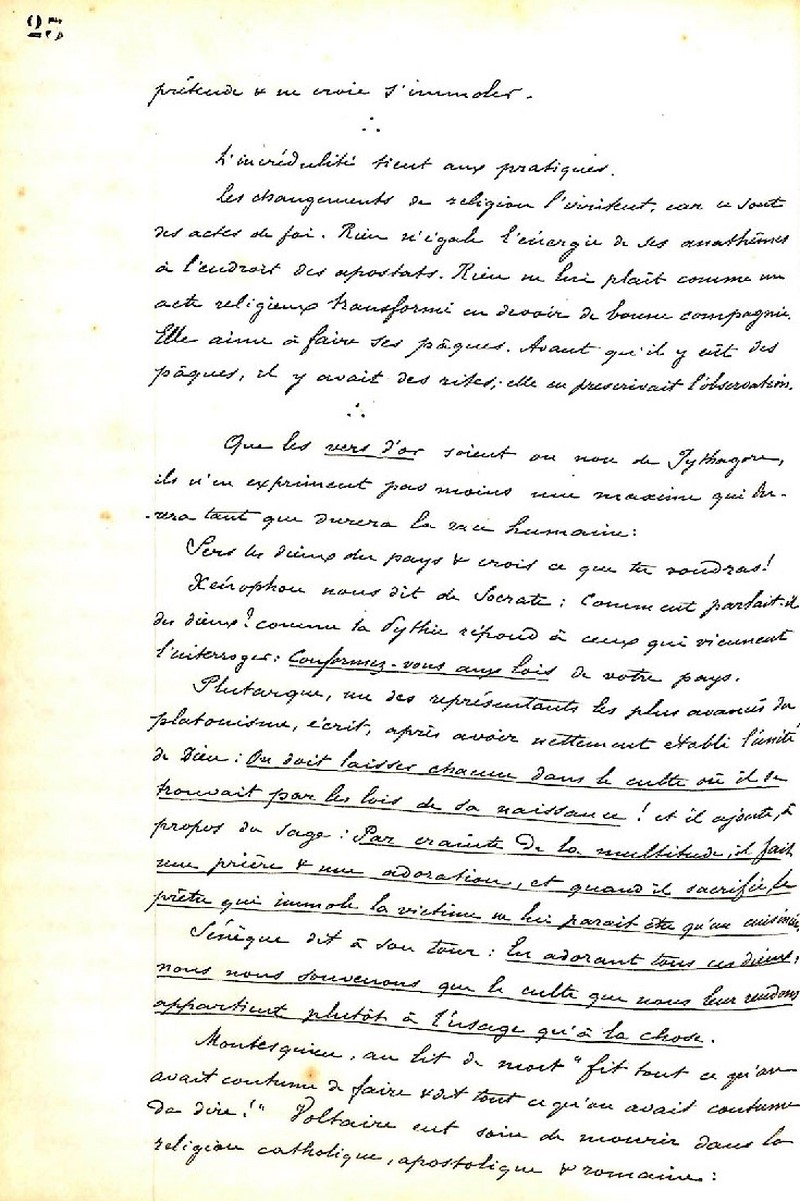 25
prétende & ne croie s'immoler.
∴
L'incrédulité tient aux pratiques.
Les changements de religion l'irritent, car ce sont
des actes de foi. Rien n'égale l'énergie de ses anathèmes
à l'endroit des apostats. Rien ne lui plaît comme un
acte religieux transformé en devoir de bonne compagnie.
Elle aime à faire ses pâques. Avant qu'il y eût des
pâques, il y avait des rites; elle en prescrivait l'observation.
∴
Que les vers d'or soient ou non de Pythagore,
ils n'en expriment pas moins une maxime qui du-
-rera tant que durera la race humaine:
Sers les dieux du pays & crois ce que tu voudras!
Xénophon nous dit de Socrate: Comment parlait-il
des dieux? comme la Pythie répond à ceux qui viennent
l'interroger: Conformez-vous aux lois de votre pays.
Plutarque, un des représentants les plus avancés du
platonisme, écrit, après avoir nettement établi l'unité
de Dieu: On doit laisser chacun dans le culte où il se
trouvait par les lois de sa naissance! et il ajoute, à
propos du sage: Par crainte de la multitude, il fait
une prière & une adoration, et quand il sacrifie, le
prêtre qui immole la victime ne lui paraît être qu'un cuisinier.
Sénèque dit à son tour: En adorant tous ces dieux,
nous nous souvenons que le culte que nous leur rendons
appartient plutôt à l'usage qu'à la chose.
Montesquieu, au lit de mort "fit tout ce qu'on
avait coutume de faire & dit tout ce qu'on avait coutume
de dire!" Voltaire eut soin de mourir dans la
religion catholique, apostolique & romaine: